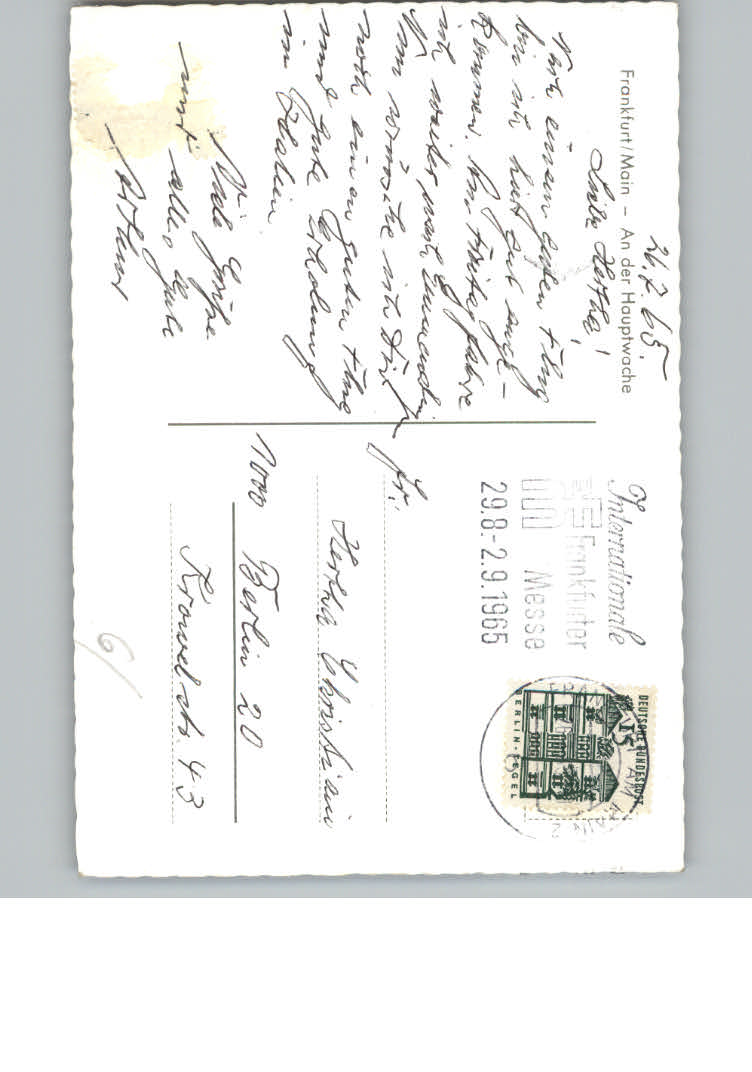 Frankfurt/Main – An der Hauptwache
26.7.65.
Liebe Hertha!
Nach einem guten Flug
bin ich hier gut ange-
kommen. Am Freitag fahre
ich weiter nach
Nun wünsche ich Dir
noch einen guten Flug
und gute Erholung
in Italien.
Viele Grüße
und alles Gute
Arthur
Internationale
Frankfurter
Messe
29.8.-2.9.1965
DEUTSCHE BUNDESPOST
15
BERLIN-TEGEL
AM MAIN 2
Fr.
Hertha Christiani
1000 Berlin 20
Krowelstr. 43
6/